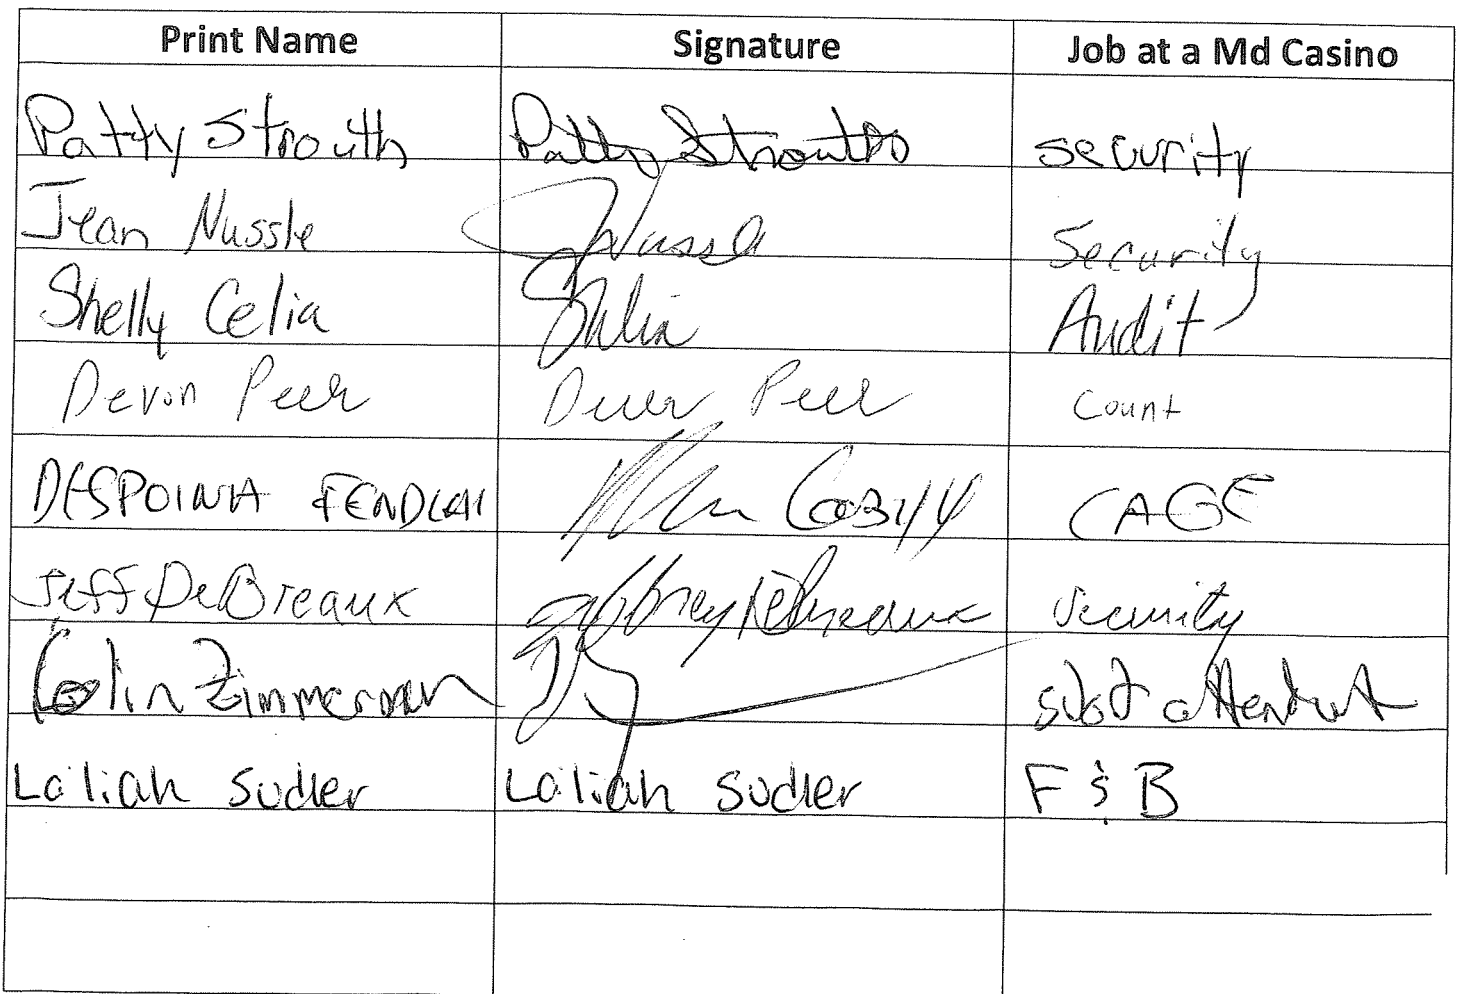 Print Name Signature Job at a Md Casino
Patty Strouth Patty Strouth security
Jean Nussle JNussle Security
Shelly Celia Audit
Devon Peer Devon Peer Count
DESPOINA CAGE
Jeff DeBreaux Jeffrey DeBreaux Security
Colin Zimmerman slot attendant
Laliah Sudler Laliah Sudler F & B